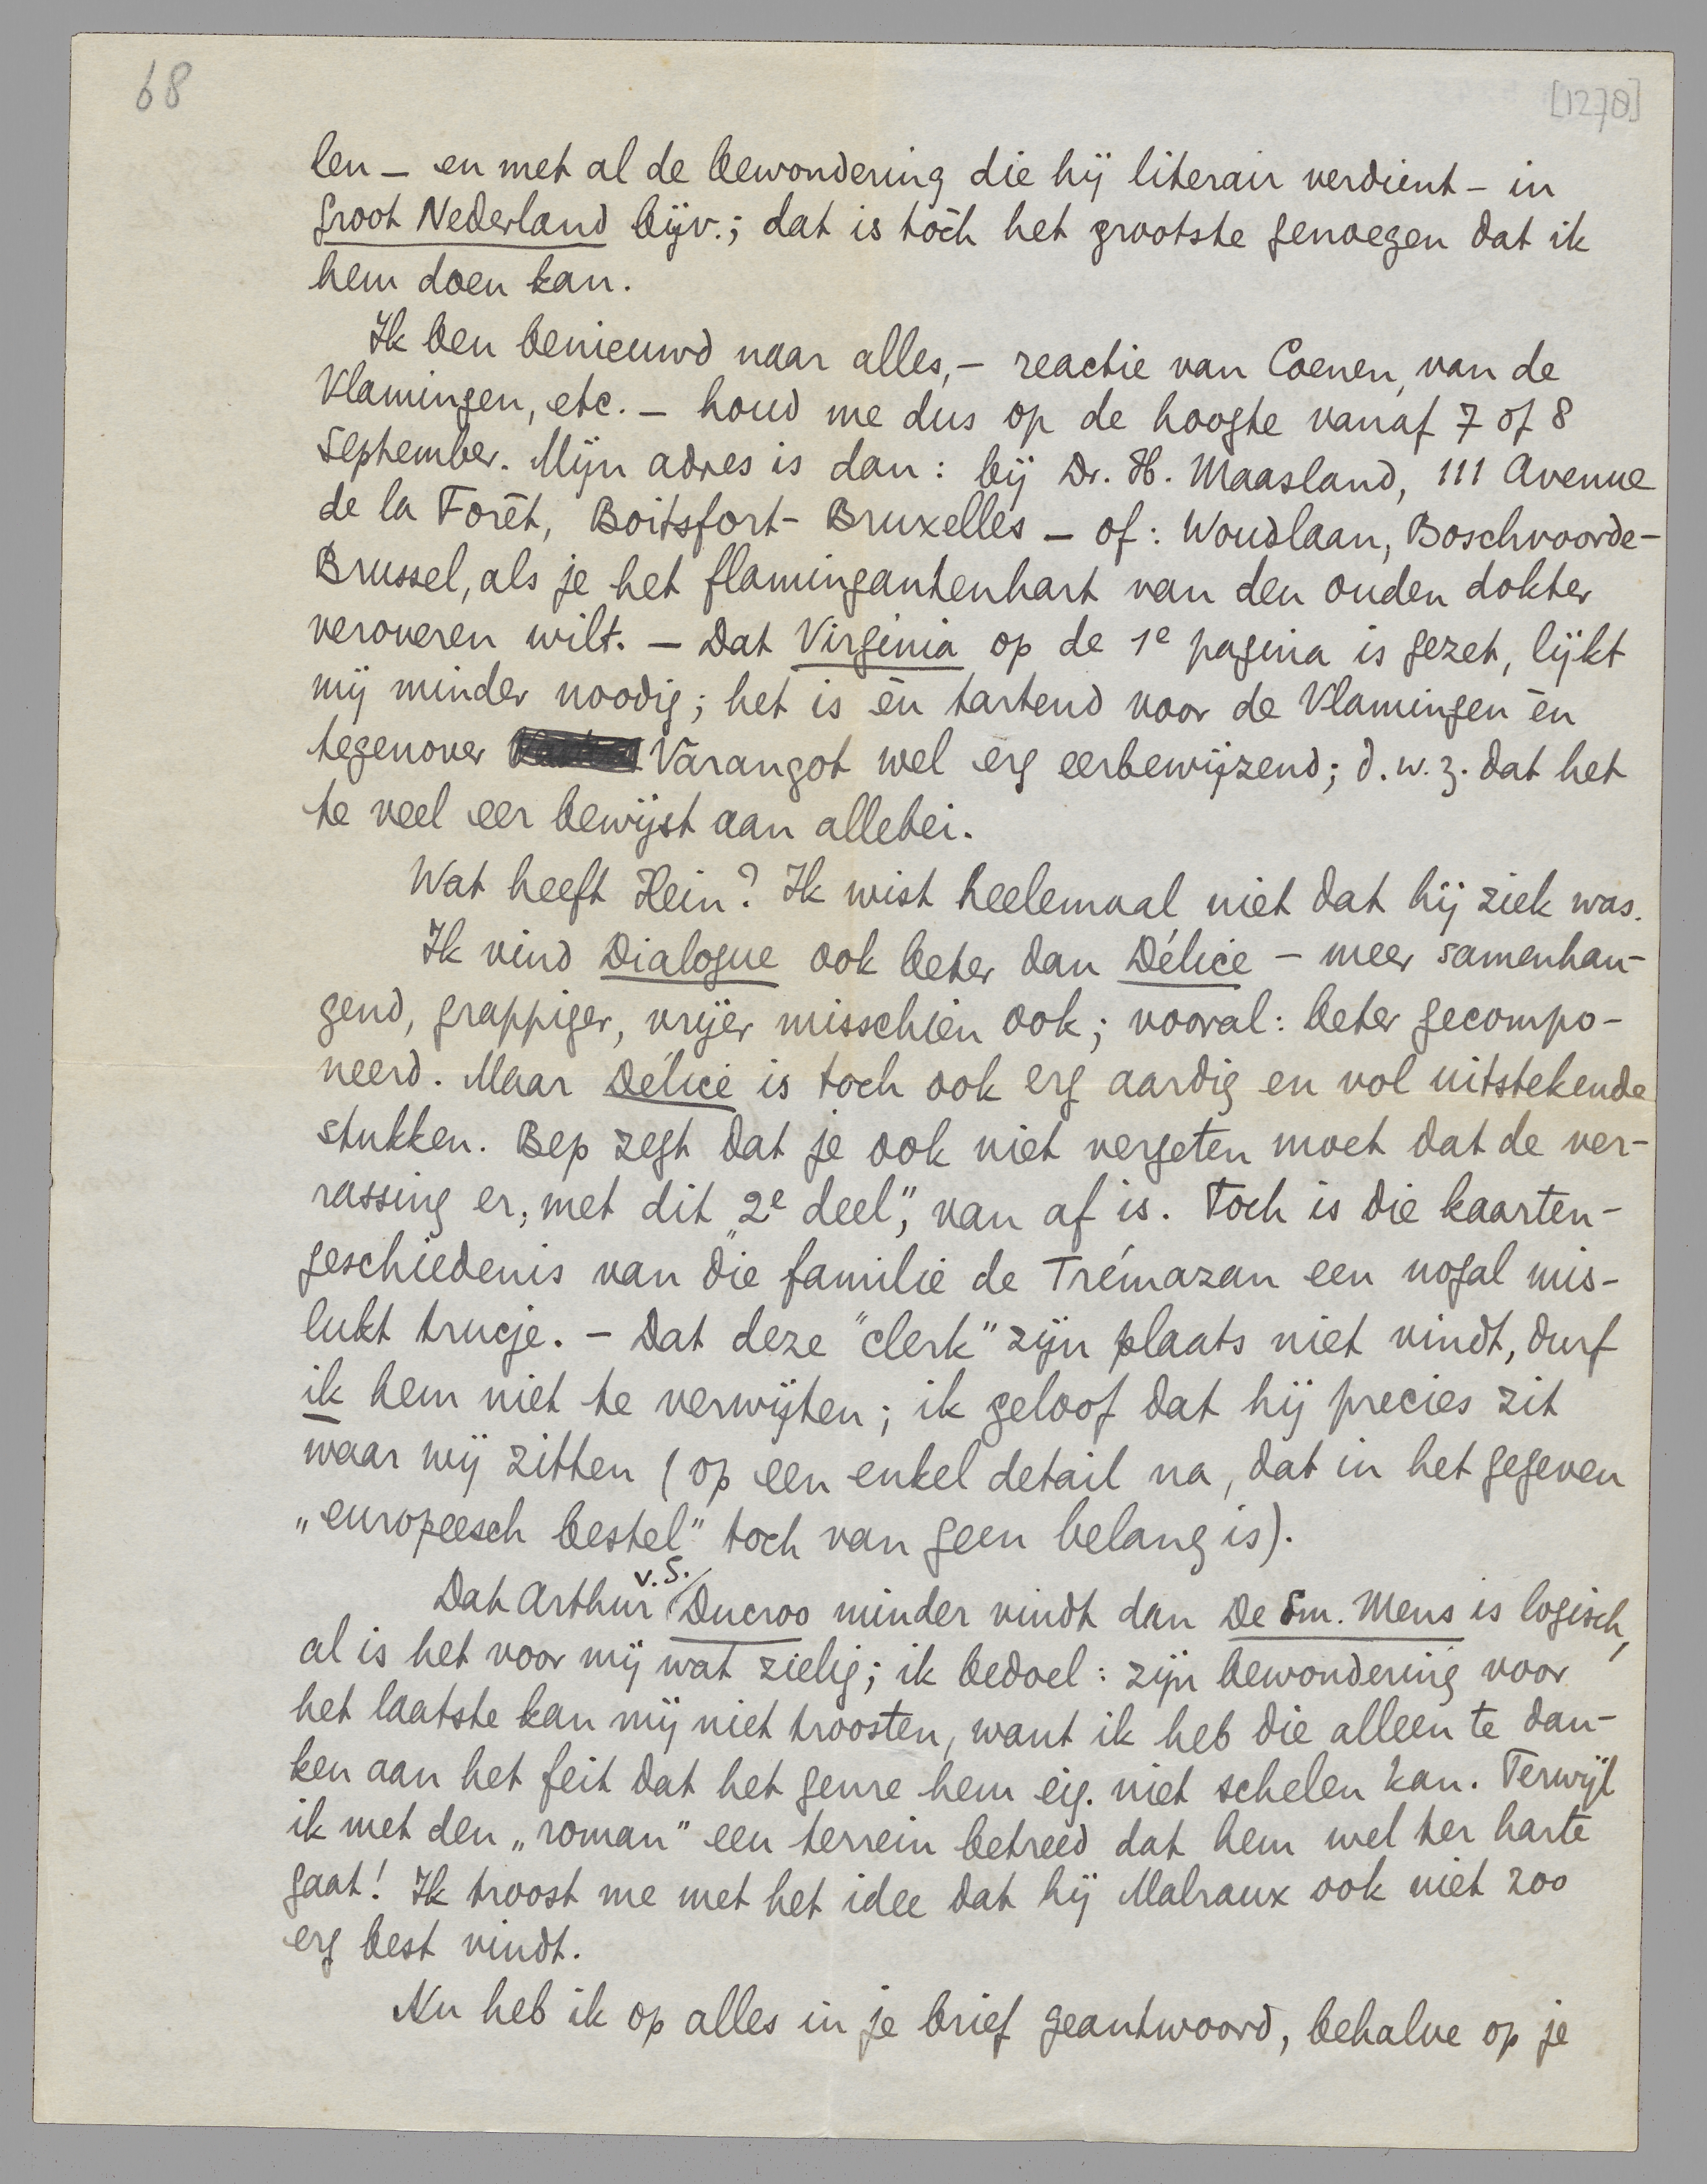 68
[1278]
len – en met al de bewondering die hij literair verdient – in
Groot Nederland bijv.; dat is tòch het grootste genoegen dat ik
hem doen kan.
Ik ben benieuwd naar alles, – reactie van Coenen, van de
Vlamingen, etc. – houd me dus op de hoogte vanaf 7 of 8
September. Mijn adres is dan: bij Dr. H. Maasland, 111 Avenue
de la Forêt, Boitsfort-Bruxelles – of: Woudlaan, Boschvoorde-
Brussel, als je het flamingantenhart van den ouden dokter
veroveren wilt. – Dat Virginia op de 1e pagina is gezet, lijkt
mij minder noodig; het is èn tartend voor de Vlamingen èn
tegenover Varangot wel erg eerbewijzend; d.w.z. dat het
te veel eer bewijst aan allebei.
Wat heeft Hein? Ik wist heelemaal niet dat hij ziek was.
Ik vind Dialogue ook beter dan Délice – meer samenhan-
gend, grappiger, vrijer misschien ook; vooral: beter gecompo-
neerd. Maar Délice is toch ook erg aardig en vol uitstekende
stukken. Bep zegt dat je ook niet vergeten moet dat de ver-
rassing er, met dit „2e deel”, van af is. Toch is die kaarten-
geschiedenis van die familie de Trémazan een nogal mis-
lukt trucje. – Dat deze "clerk" zijn plaats niet vindt, durf
ik hem niet te verwijten; ik geloof dat hij precies zit
waar wij zitten (op een enkel detail na, dat in het gegeven
„europeesch bestel” toch van geen belang is).
Dat Arthur v.S. Ducroo minder vindt dan De Sm. Mens is logisch,
al is het voor mij wat zielig; ik bedoel: zijn bewondering voor
het laatste kan mij niet troosten, want ik heb die alleen te dan-
ken aan het feit dat het genre hem eig. niet schelen kan. Terwijl
ik met den „roman” een terrein betreed dat hem wel ter harte
gaat! Ik troost me met het idee dat hij Malraux ook niet zoo
erg best vindt.
Nu heb ik op alles in je brief geantwoord, behalve op je